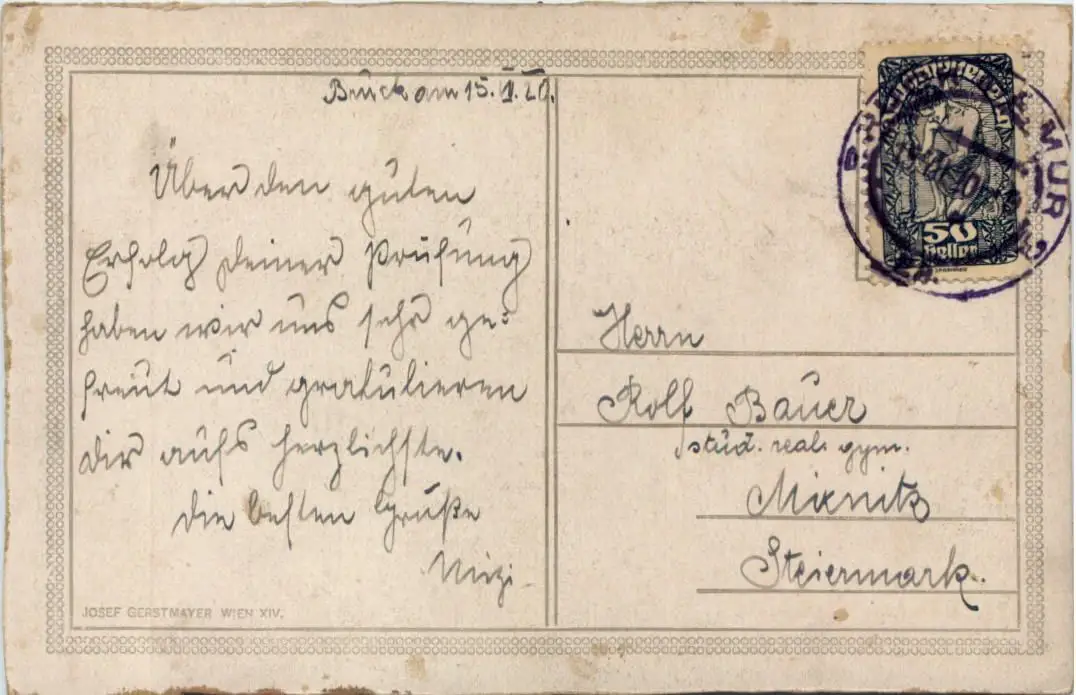 Bruck am 15. V. 20.
Über den guten
Erfolg deiner Prüfung
haben wir uns sehr ge=
freut und gratulieren
dir aufs herzlichste.
Die besten Grüße
Mizi
JOSEF GERSTMAYER WIEN XIV.
50
Heller
MUR
Herrn
Rolf Bauer
stud. real. gym.
Mixnitz
Steiermark.